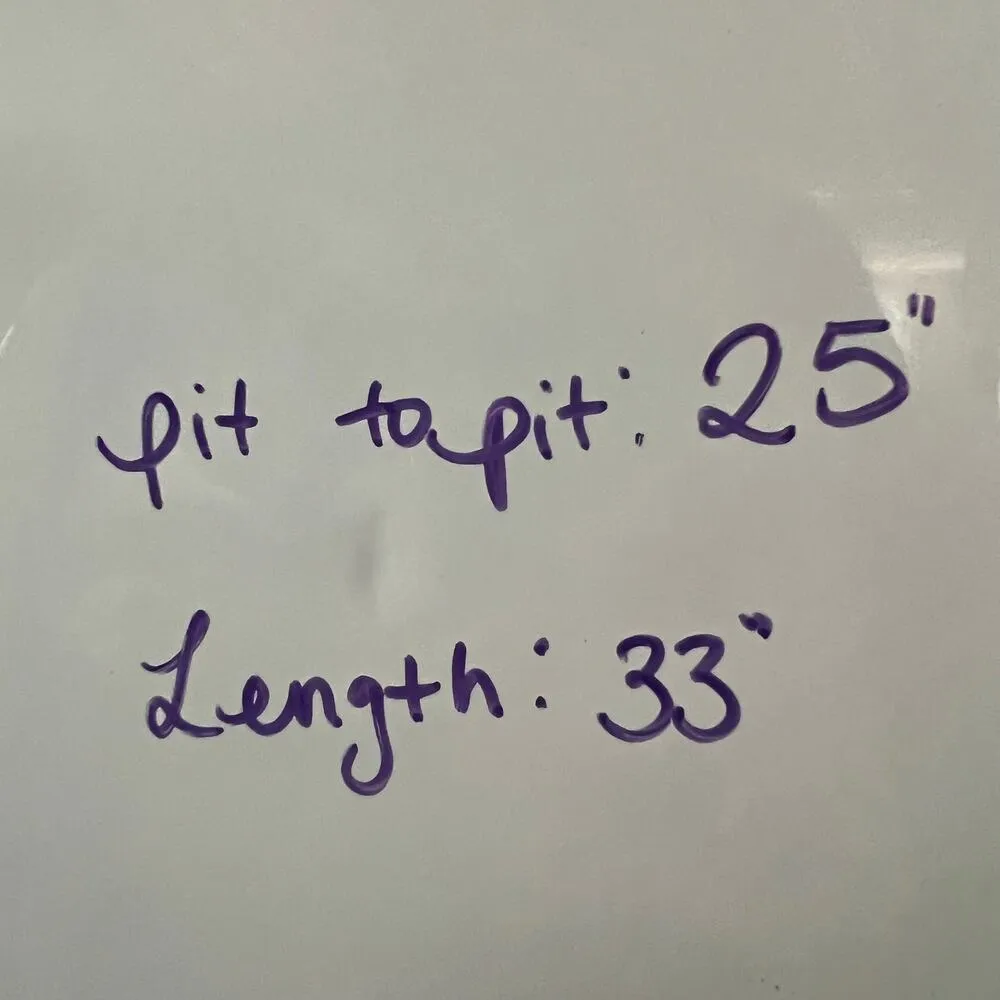 pit to pit: 25"
Length: 33"